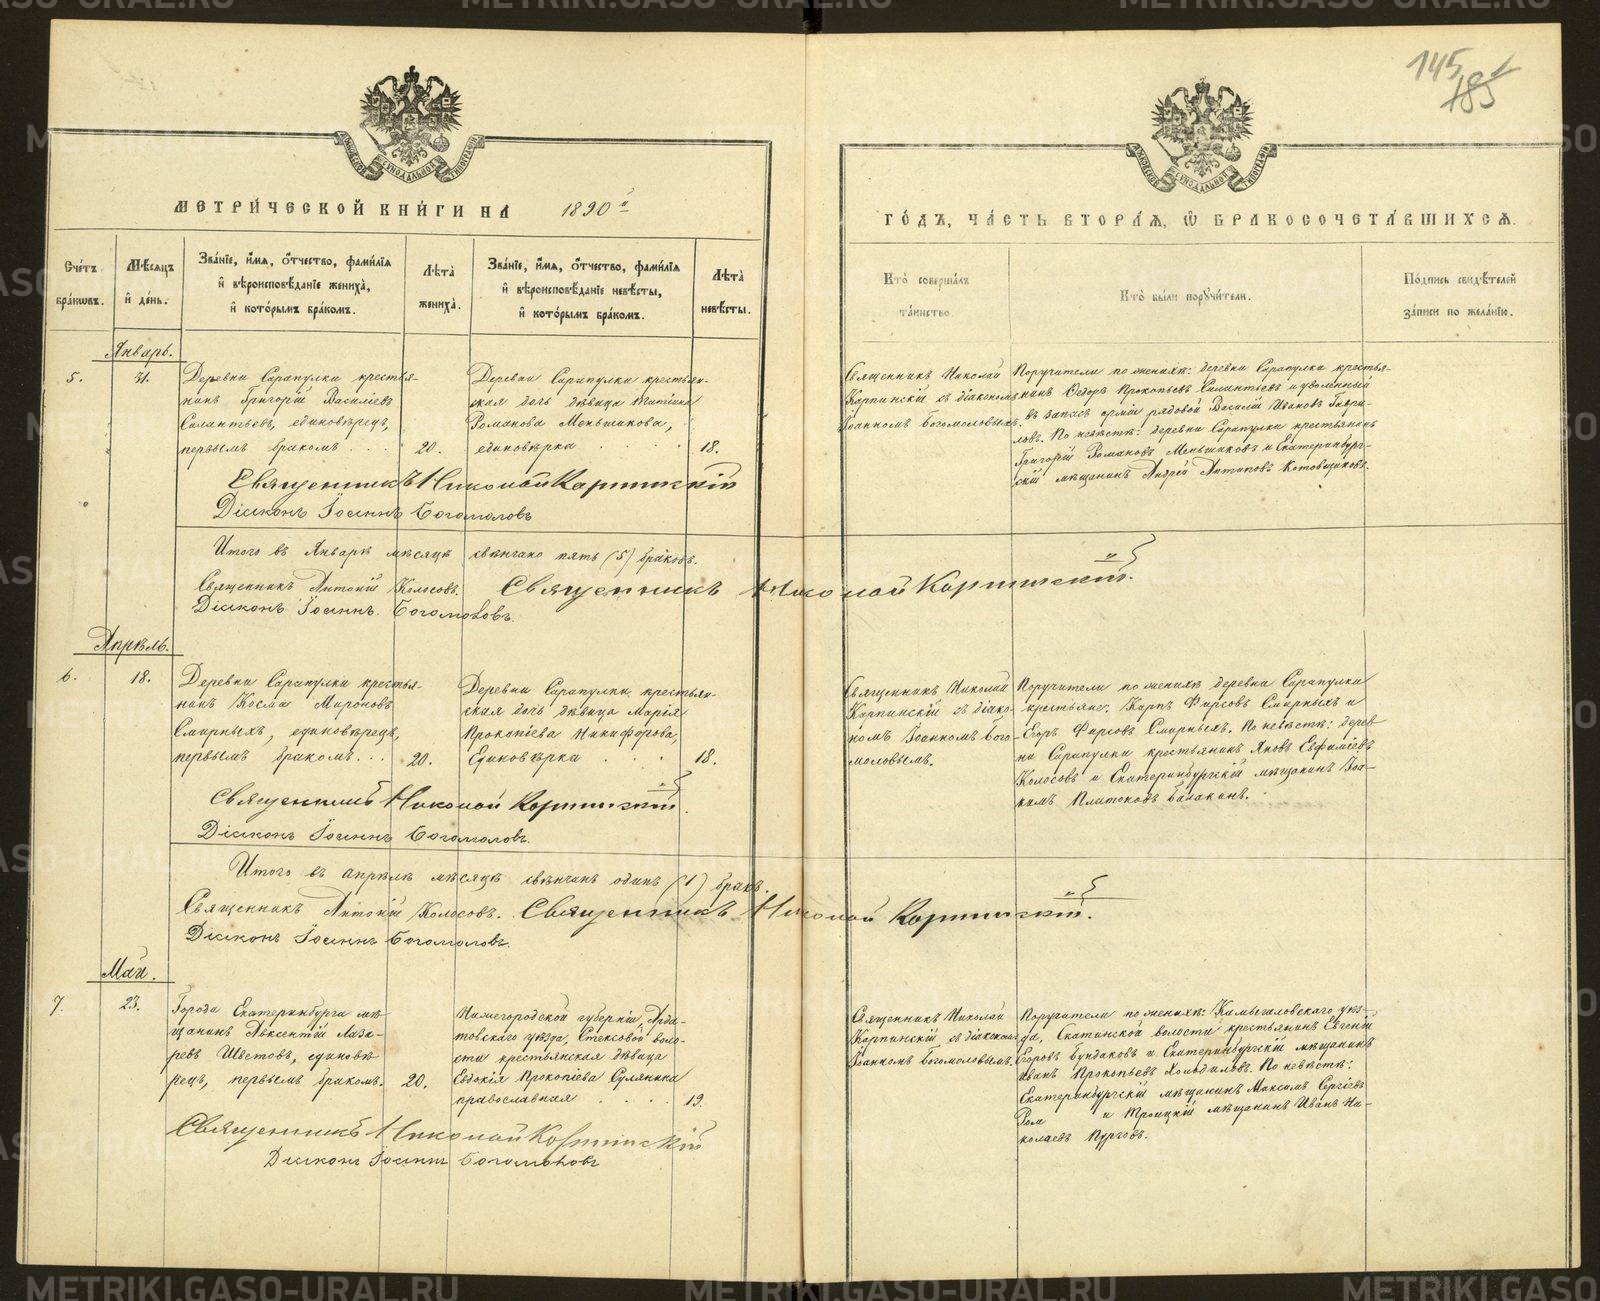 145
185
МЕТРИ́ЧЕСКОЙ КНИ́ГИ НА 1890й
ГО́ДЪ, ЧА́СТЬ ВТОРА́Я, Ѡ҆ БРАКОСОЧЕТА́ВШИХСЯ.
Сче́тъ бра́кѡвъ.
Мѣ́сяцъ и҆ де́нь.
Зва́нїе, и҆́мя, ѻ҆́тчество, фами́лїя и҆ вѣроисповѣ́данїе жениха̀, и҆ кото́рымъ бра́комъ.
Лѣ́та жениха̀.
Зва́нїе, и҆́мя, ѻ҆́тчество, фами́лїя и҆ вѣроисповѣ́данїе невѣ́сты, и҆ кото́рымъ бра́комъ.
Лѣ́та невѣ́сты.
Кто̀ соверша́лъ та́инство
Кто̀ бы́ли порꙋчи́тели.
По́дпись свидѣ́телей за́писи по жела́нїю.
Январь.
5.
31.
Деревни Сарапулки крестья-
нинъ Григорій Василіевъ
Салантьевъ, единовѣрецъ,
первымъ бракомъ . . .
20.
Деревни Сарапулки крестьян-
ская дочь дѣвица Матрона
Романова Меньшикова,
единовѣрка
18.
Священникъ Николай
Карпинскій съ діакономъ
Іоанномъ Богомоловымъ.
Поручители по женихѣ: деревни Сарапулки крестья-
нинъ Ѳедоръ Прокопьевъ Салантьевъ и уволенный
въ запасъ арміи рядовой Василій Ивановъ Гаври-
ловъ. По невѣстѣ: деревни Сарапулки крестьянинъ
Григорій Романовъ Меньшиковъ и Екатеринбург-
скій мѣщанинъ Андрей Антиповъ Котовщиковъ.
Священникъ Николай Карпинскій
Діаконъ Іоаннъ Богомоловъ
Итого въ Январѣ мѣсяцѣ свѣнчано пять (5) браковъ.
Священникъ Антоній Колосовъ. Священникъ Николай Карпинскій.
Діаконъ Іоаннъ Богомоловъ.
Апрѣль.
6.
18.
Деревни Сарапулки крестья-
нинъ Косма Мироновъ
Смирныхъ, единовѣрецъ,
первымъ бракомъ . . .
20.
Деревни Сарапулки, крестьян-
ская дочь дѣвица Марія
Прокопіева Никифорова,
Единовѣрка . . .
18.
Священникъ Николай
Карпинскій съ діако-
номъ Іоанномъ Бого-
моловымъ.
Поручители по женихѣ деревни Сарапулки
крестьяне: Карпъ Фирсовъ Смирныхъ и
Егоръ Фирсовъ Смирныхъ. По невѣстѣ: дерев
ни Сарапулки крестьянинъ Яковъ Евфиміевъ
Колосовъ и Екатеринбургскій мѣщанинъ Іоа-
кимъ Платоновъ Балакинъ.
Священникъ Николай Карпинскій.
Діаконъ Іоаннъ Богомоловъ.
Итого въ апрѣлѣ мѣсяцѣ свѣнчанъ одинъ (1) бракъ.
Священникъ Антоній Колосовъ. Священникъ Николай Карпинскій.
Діаконъ Іоаннъ Богомоловъ.
Май.
7.
23.
Города Екатеринбурга мѣ-
щанинъ Авксентій Лаза-
ревъ Цветовъ, единовѣ
рецъ, первымъ бракомъ.
20.
Нижегородской губерніи, Арда-
товскаго уѣзда, Стексовой воло-
сти крестьянская дѣвица
Евдокія Прокопіева Сулянина
православная . . . .
19.
Священникъ Николай
Карпинскій, съ діакономъ
Іоанномъ Богомоловымъ.
Поручители по женихѣ: Камышловскаго уѣз-
да, Скатинской волости крестьянинъ Евгеній
Егоровъ Бундаковъ и Екатеринбургскій мѣщанинъ
Иванъ Прокопьевъ Холодиловъ. По невѣстѣ:
Екатеринбургскій мѣщанинъ Максимъ Сергіевъ
Ром и Троицкій мѣщанинъ Иванъ Ни-
колаевъ Пурговъ.
Священникъ Николай Карпинскій
Діаконъ Іоаннъ Богомоловъ
METRIKI.GASO-URAL.RU